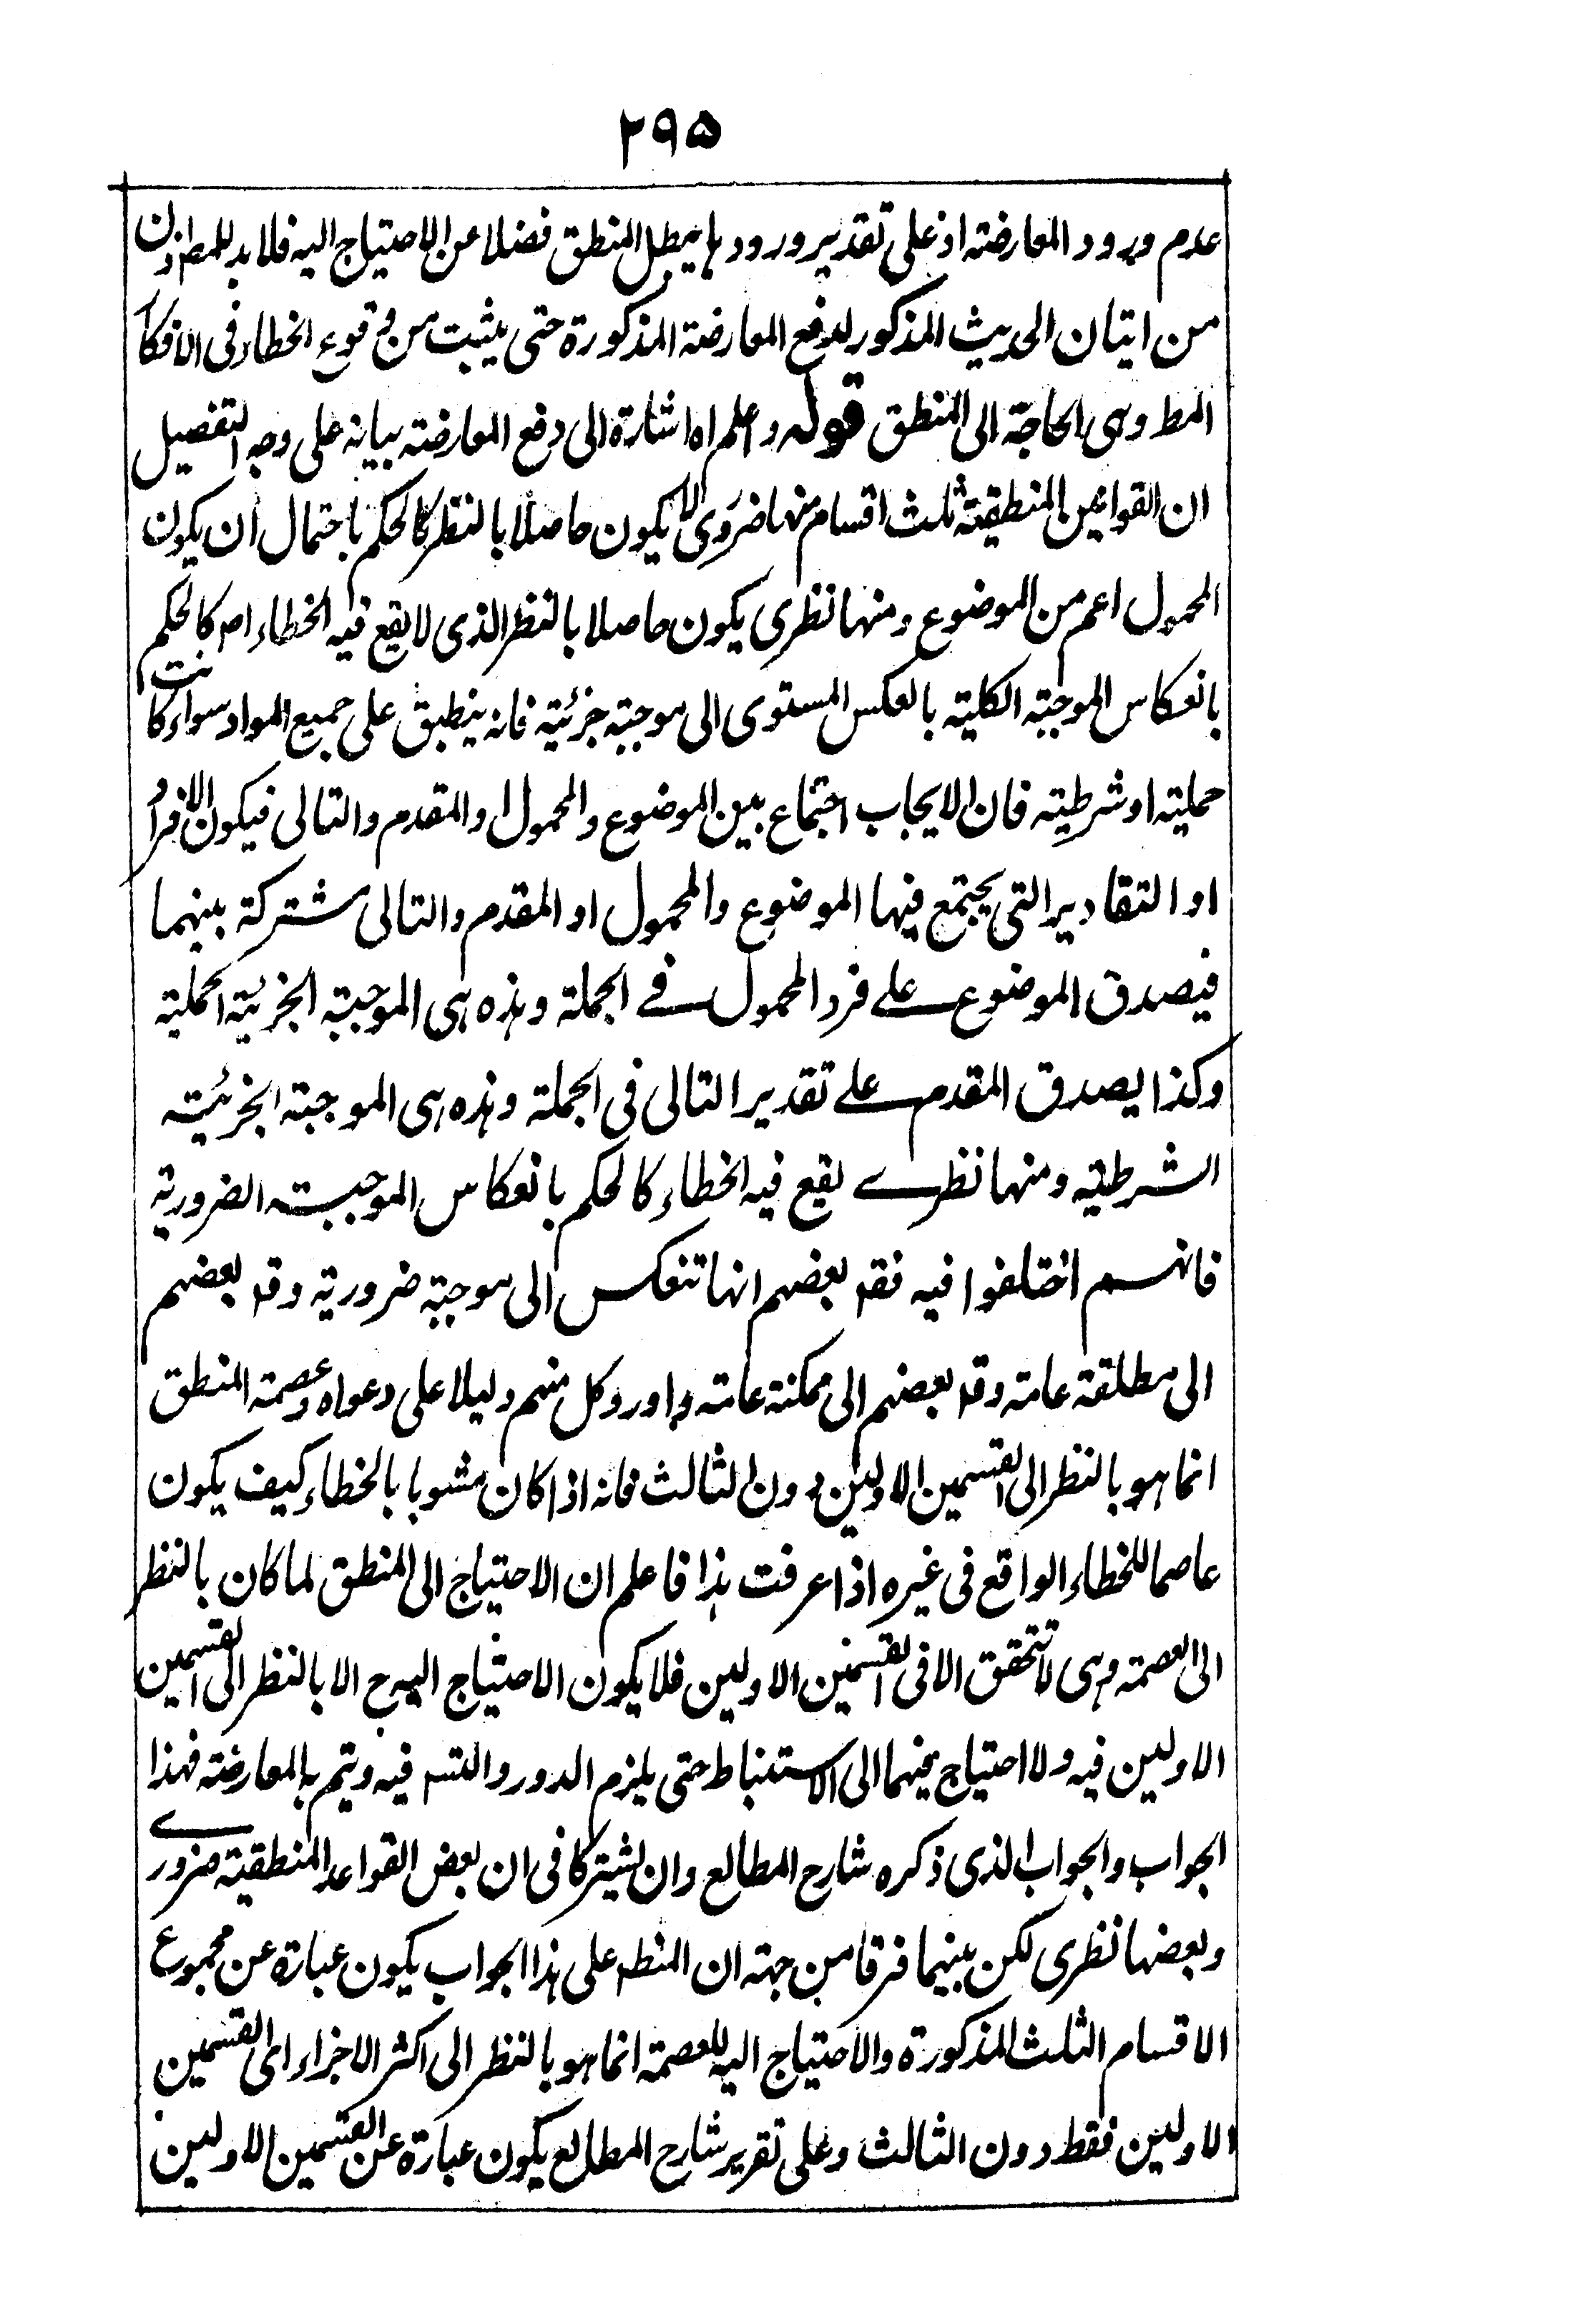 ٢٩٥
عدم ورود المعارضة اذ على تقدير ورودها يبطل المنطق فضلا عن الاحتياج اليه فلا بد للمط اذن
من اتيان الحديث المذكور لدفع المعارضة المذكورة حتى يثبت من وقوع الخطاء فى الافكار
المط وهى الحاجة الى المنطق قوله واعلم اه اشارة الى دفع المعارضة بيانه على وجه التفصيل
ان القوانين المنطقية ثلث اقسام منها ضرورى لا يكون حاصلا بالنظر كالحكم باحتمال ان يكون
المحمول اعم من الموضوع ومنها نظرى يكون حاصلا بالنظر الذى لا يقع فيه الخطاء اص كالحكم
بانعكاس الموجبة الكلية بالعكس المستوى الى موجبة جزئية فانه ينطبق على جميع المواد سواء كانت
حملية او شرطية فان الايجاب اجتماع بين الموضوع والمحمول او المقدم والتالى فيكون الافراد
او التقادير التى يجتمع فيها الموضوع والمحمول او المقدم والتالى مشتركة بينهما
فيصدق الموضوع على فرد المحمول فى الجملة وهذه هى الموجبة الجزئية الحملية
وكذا يصدق المقدم على تقدير التالى فى الجملة وهذه هى الموجبة الجزئية
الشرطية ومنها نظرى يقع فيه الخطاء كالحكم بانعكاس الموجبة الضرورية
فانهم اختلفوا فيه فقه بعضهم انها تنعكس الى موجبة ضرورية وقه بعضهم
الى مطلقة عامة وقه بعضهم الى ممكنة عامة واورد كل منهم دليلا على دعواه وعصمة المنطق
انما هو بالنظر الى القسمين الاولين دون الثالث فانه اذا كان مشوبا بالخطاء كيف يكون
عاصما للخطاء الواقع فى غيره اذا عرفت هذا فاعلم ان الاحتياج الى المنطق لما كان بالنظر
الى العصمة وهى لا تتحقق الا فى القسمين الاولين فلا يكون الاحتياج اليه ح الا بالنظر الى القسمين
الاولين فيه ولا احتياج فيهما الى الاستنباط حتى يلزم الدور والتسه فيه ويتم بالمعارضة فهذا
الجواب والجواب الذى ذكره شارح المطالع وان يشتركا فى ان بعض القواعد المنطقية ضرورى
وبعضها نظرى لكن بينهما فرقا من جهة ان المنطه على هذا الجواب يكون عبارة عن مجموع
الاقسام الثلث المذكورة والاحتياج اليه للعصمة انما هو بالنظر الى اكثر الاجزاء اى القسمين
الاولين فقط دون الثالث وعلى تقرير شارح المطالع يكون عبارة عن القسمين الاولين